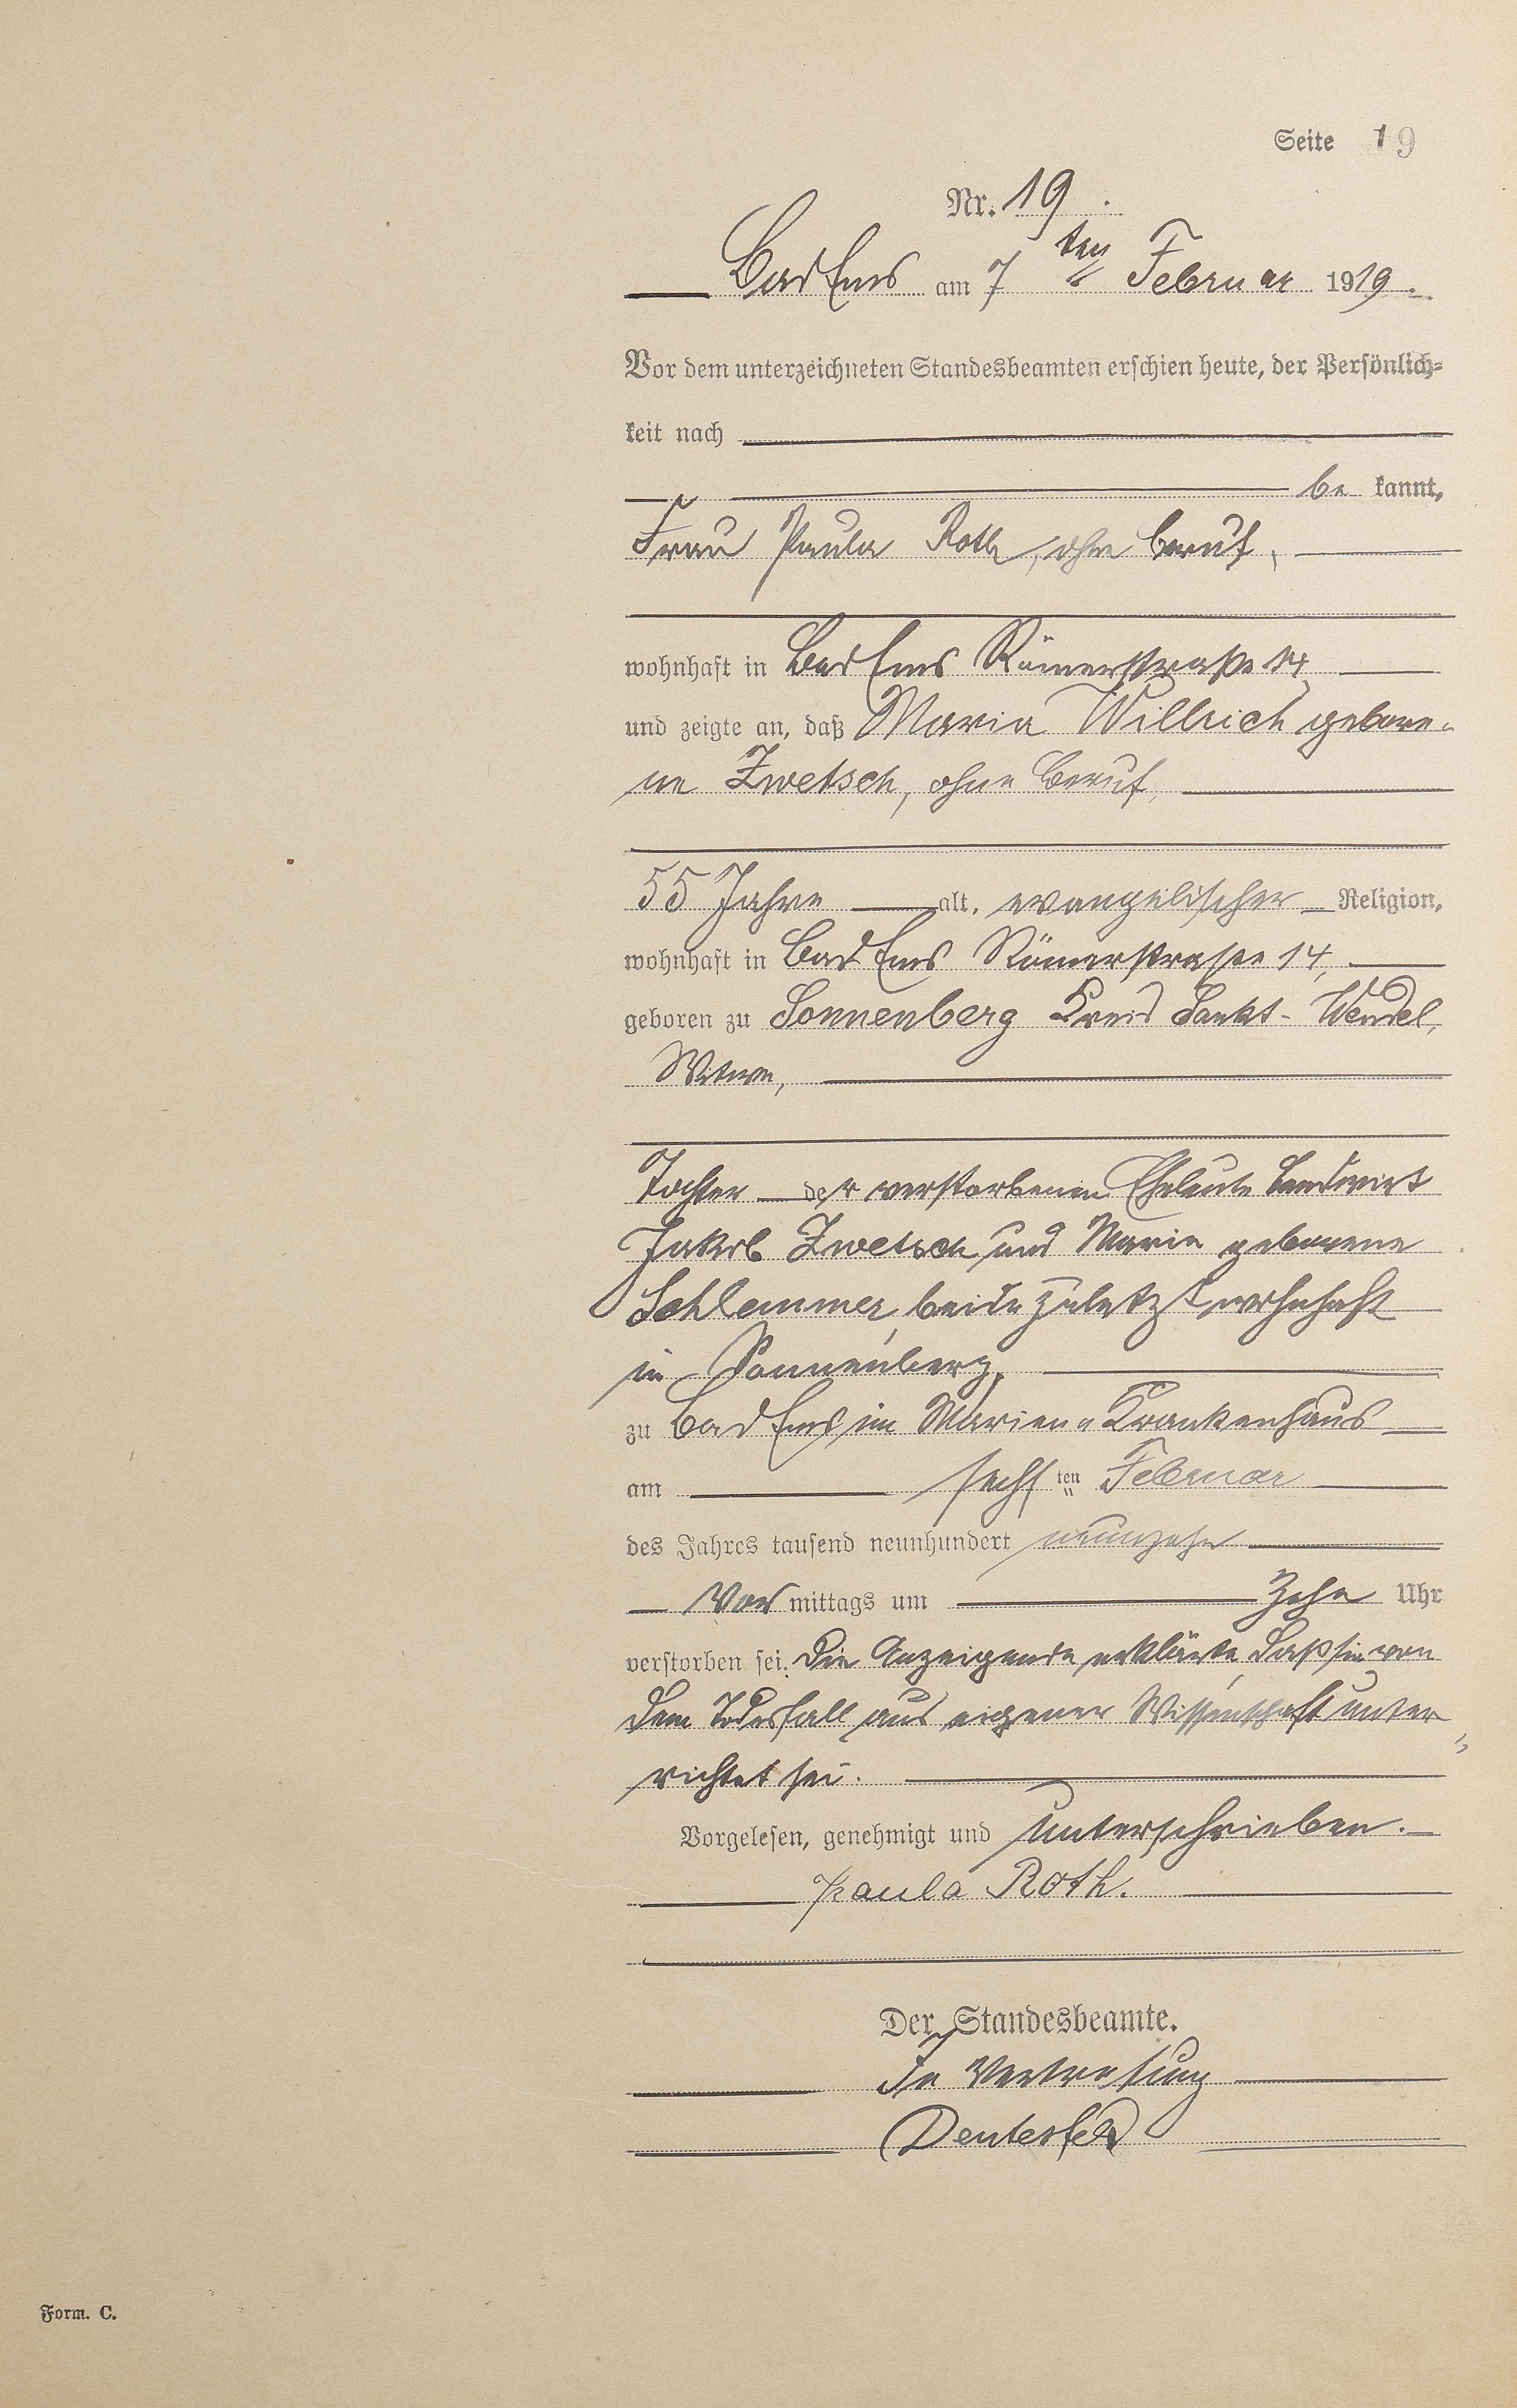 Seite 19
Nr. 19.
Bad Ems am 7ten Februar 1919.
Vor dem unterzeichneten Standesbeamten erschien heute, der Persönlich-
keit nach
be kannt,
Frau Paula Roth, ohne Beruf,
wohnhaft in Bad Ems Römerstraße 14
und zeigte an, daß Maria Willrich gebore-
ne Zwetsch, ohne Beruf,
55 Jahre alt, evangelischer Religion,
wohnhaft in Bad Ems Römerstrasse 14,
geboren zu Sonnenberg Kreis Sankt-Wendel,
Witwe,
Tochter der verstorbenen Eheleute Landwirt
Jakob Zwetsch und Maria geborene
Schlemmer, beide zuletzt wohnhaft
in Sonnenberg,
zu Bad Ems im Marien-Krankenhaus
am sechsten Februar
des Jahres tausend neunhundert neunzehn
Vor mittags um zehn Uhr
verstorben sei. Die Anzeigende erklärte, daß sie von
dem Todesfall aus eigener Wissenschaft unter-
richtet sei.
Vorgelesen, genehmigt und unterschrieben.
Paula Roth.
Der Standesbeamte.
In Vertretung
Form. C.